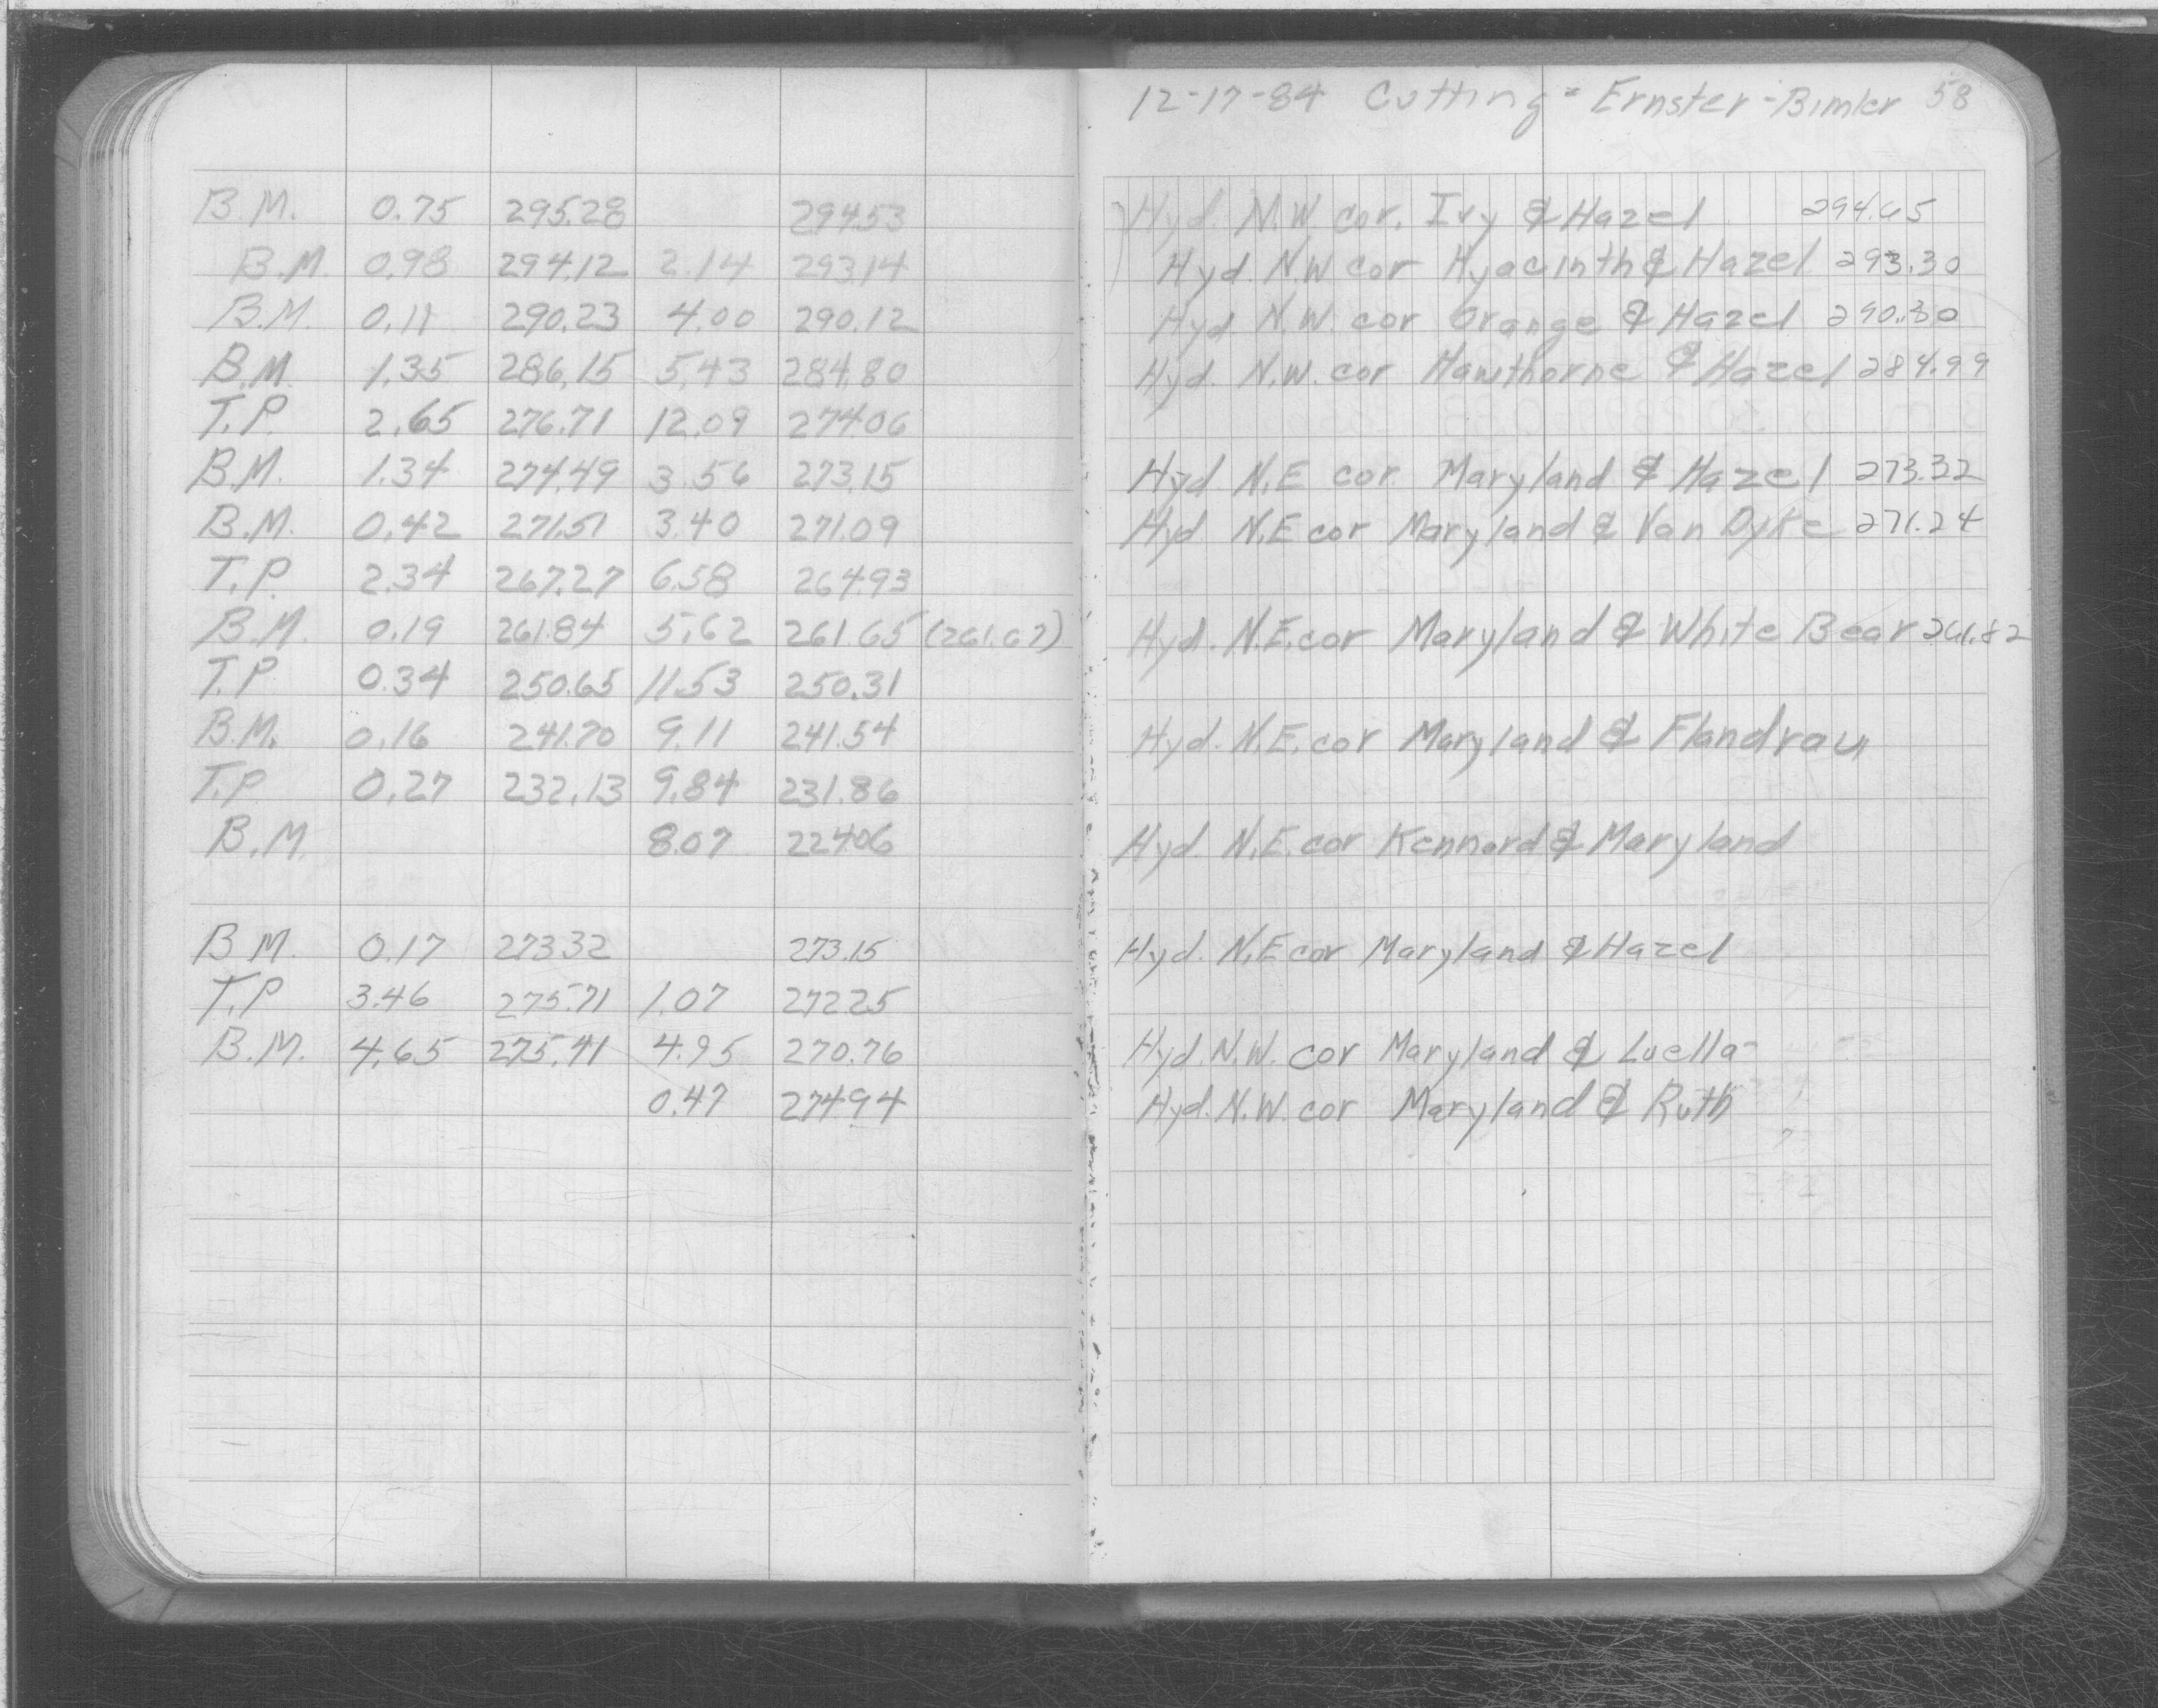 12-17-84 Cutting - Ernster - Bimler 58
B.M. 0.75 295.28 294.53 Hyd. N.W. cor. Ivy & Hazel 294.65
B.M. 0.98 294.12 2.14 293.14 Hyd. N.W cor Hyacinth & Hazel 293.30
B.M. 0.11 290.23 4.00 290.12 Hyd N.W. cor Orange & Hazel 290.30
B.M. 1.35 286.15 5.43 284.80 Hyd. N.W. cor Hawthorne & Hazel 284.99
T.P. 2.65 276.71 12.09 274.06
B.M. 1.34 274.49 3.56 273.15 Hyd N.E cor. Maryland & Hazel 273.32
B.M. 0.42 271.51 3.40 271.09 Hyd N.E cor Maryland & Van Dyke 271.24
T.P. 2.34 267.27 6.58 264.93
B.M. 0.19 261.84 5.62 261.65 (261.67) Hyd. N.E. cor Maryland & White Bear 261.82
T.P 0.34 250.65 11.53 250.31
B.M. 0.16 241.70 9.11 241.54 Hyd. N.E. cor Maryland & Flandrau
T.P 0.27 232.13 9.84 231.86
B.M. 8.07 224.06 Hyd. N.E. cor Kennard & Maryland
B M. 0.17 273.32 273.15 Hyd. N.E cor Maryland & Hazel
T.P 3.46 275.71 1.07 272.25
B.M. 4.65 275.41 4.95 270.76 Hyd. N.W. cor Maryland & Luella
0.47 274.94 Hyd. N.W. cor Maryland & Ruth